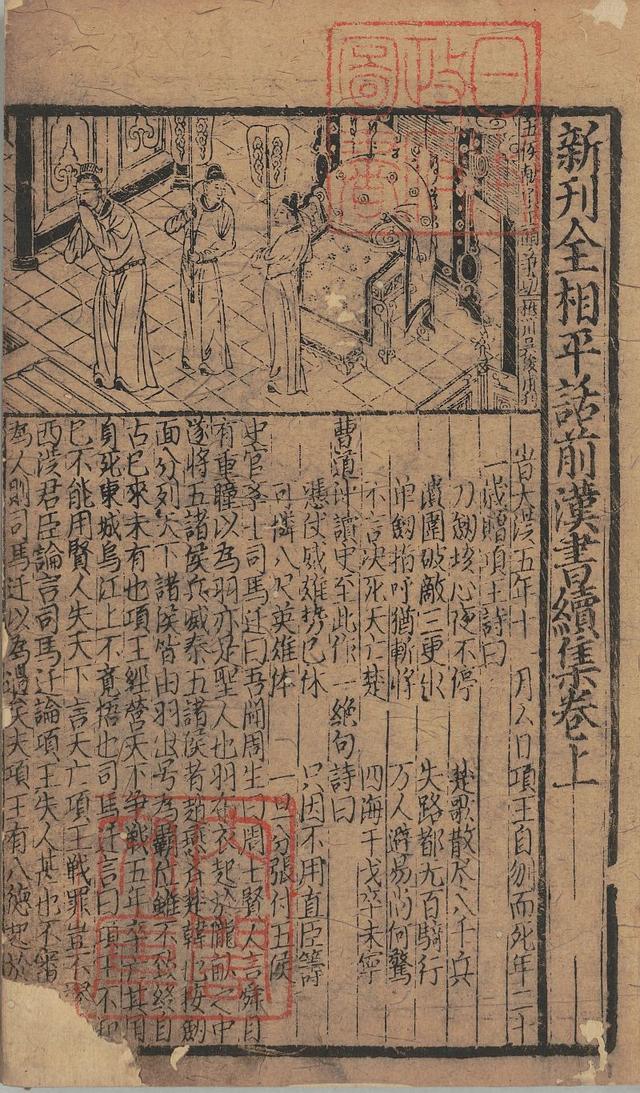 新刊全相平話前漢書續集卷上
樵川吳俊甫刊
昔大漢五年十一月八日項王自刎而死年三十
一歲瞻項王詩曰
刀劍垓心夜不停　楚歌散尽八千兵
潰圍破敵三更出　失路都无百騎行
伸劍指呼猶斬將　万人避易尚何驚
不言决死天亡楚　四海干戈卒未寧
曹道冲讀史至此作一絶句詩曰
憑仗威雄势已休　只因不用直臣籌
可憐八尺英雄体　一旦分張付五侯
史官季士司馬迁曰吾聞周生曰周士賢大言舜目
有重瞳以為羽亦是聖人也羽布衣起於隴畝之中
遂將五諸侯兵滅秦五諸侯者趙燕齐楚韓也按劒
面分列天下諸侯皆由羽出号為霸位雖不致終自
古已來未有也項王經營天下爭戰五年卒亡其国
身死東城烏江上不竟悟也司馬迁言曰項王不知
已不能用賢人失天下言天亡項王戦罪豈不
西漢君臣論言司馬迁論項王失人甚也不審
為人則司馬迁以為過矣夫項王有八德